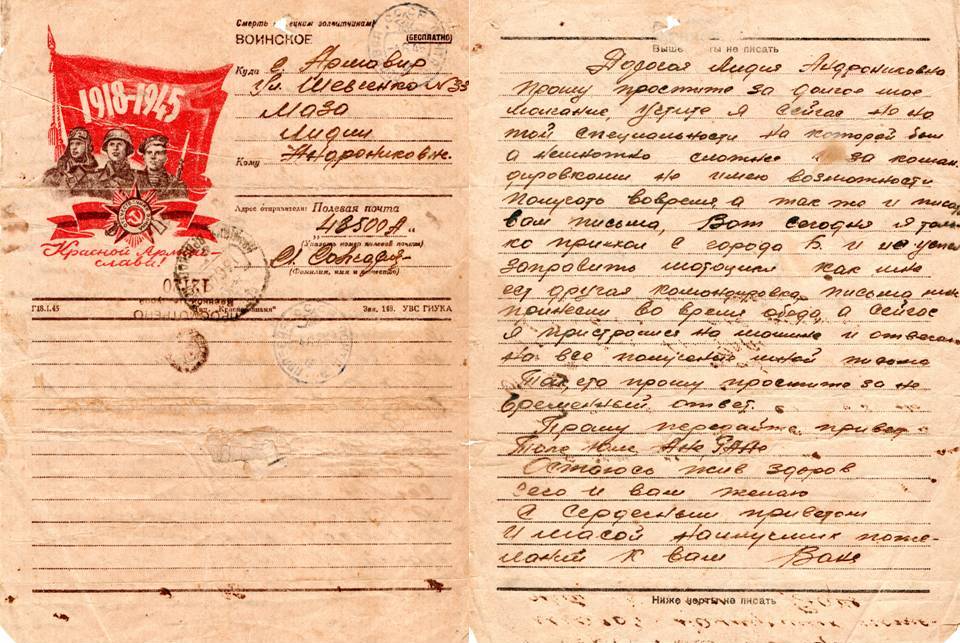 Смерть немецким захватчикам
ВОИНСКОЕ
(БЕСПЛАТНО)
1918-1945
Красной Армии-
слава!
Куда г. Армавир
Ул. Шевченко N 33
Маза
Лидии
Кому Андрониковн.
Адрес отправителя: Полевая почта
„48500А„
(Указать номер полевой почты)
(Фамилия, имя и отчество)
Г18.1.45
Зак. 169. УВС ГИУКА
ПРОСМОТРЕНО
Военной
Выше черты не писать
Дорогая Лидия Андрониковна
прошу простите за долгое мое
молчание, я сейчас на не
той специальности на которой был
а немножко сложнее и за коман
дировками не имею возможности
получать вовремя а так же и писать
вам письма, Вот сегодня я толь
ко приехал с города Б. и не успел
заправить мотоцикл как мне
ест другая командировка, письма мне
принесли во время обеда, а сейчас
Я пристроился на машине и отвечаю
На все полученые мной письма
Так, что прошу простите за не
временный ответ.
Прошу передайте привет
Толе Юле Ане
Остаюсь жив здоров
чего и вам желаю
А Сердечным приветом
И массой наилучших поже-
ланий к вам Ваня
Ниже черты не писать